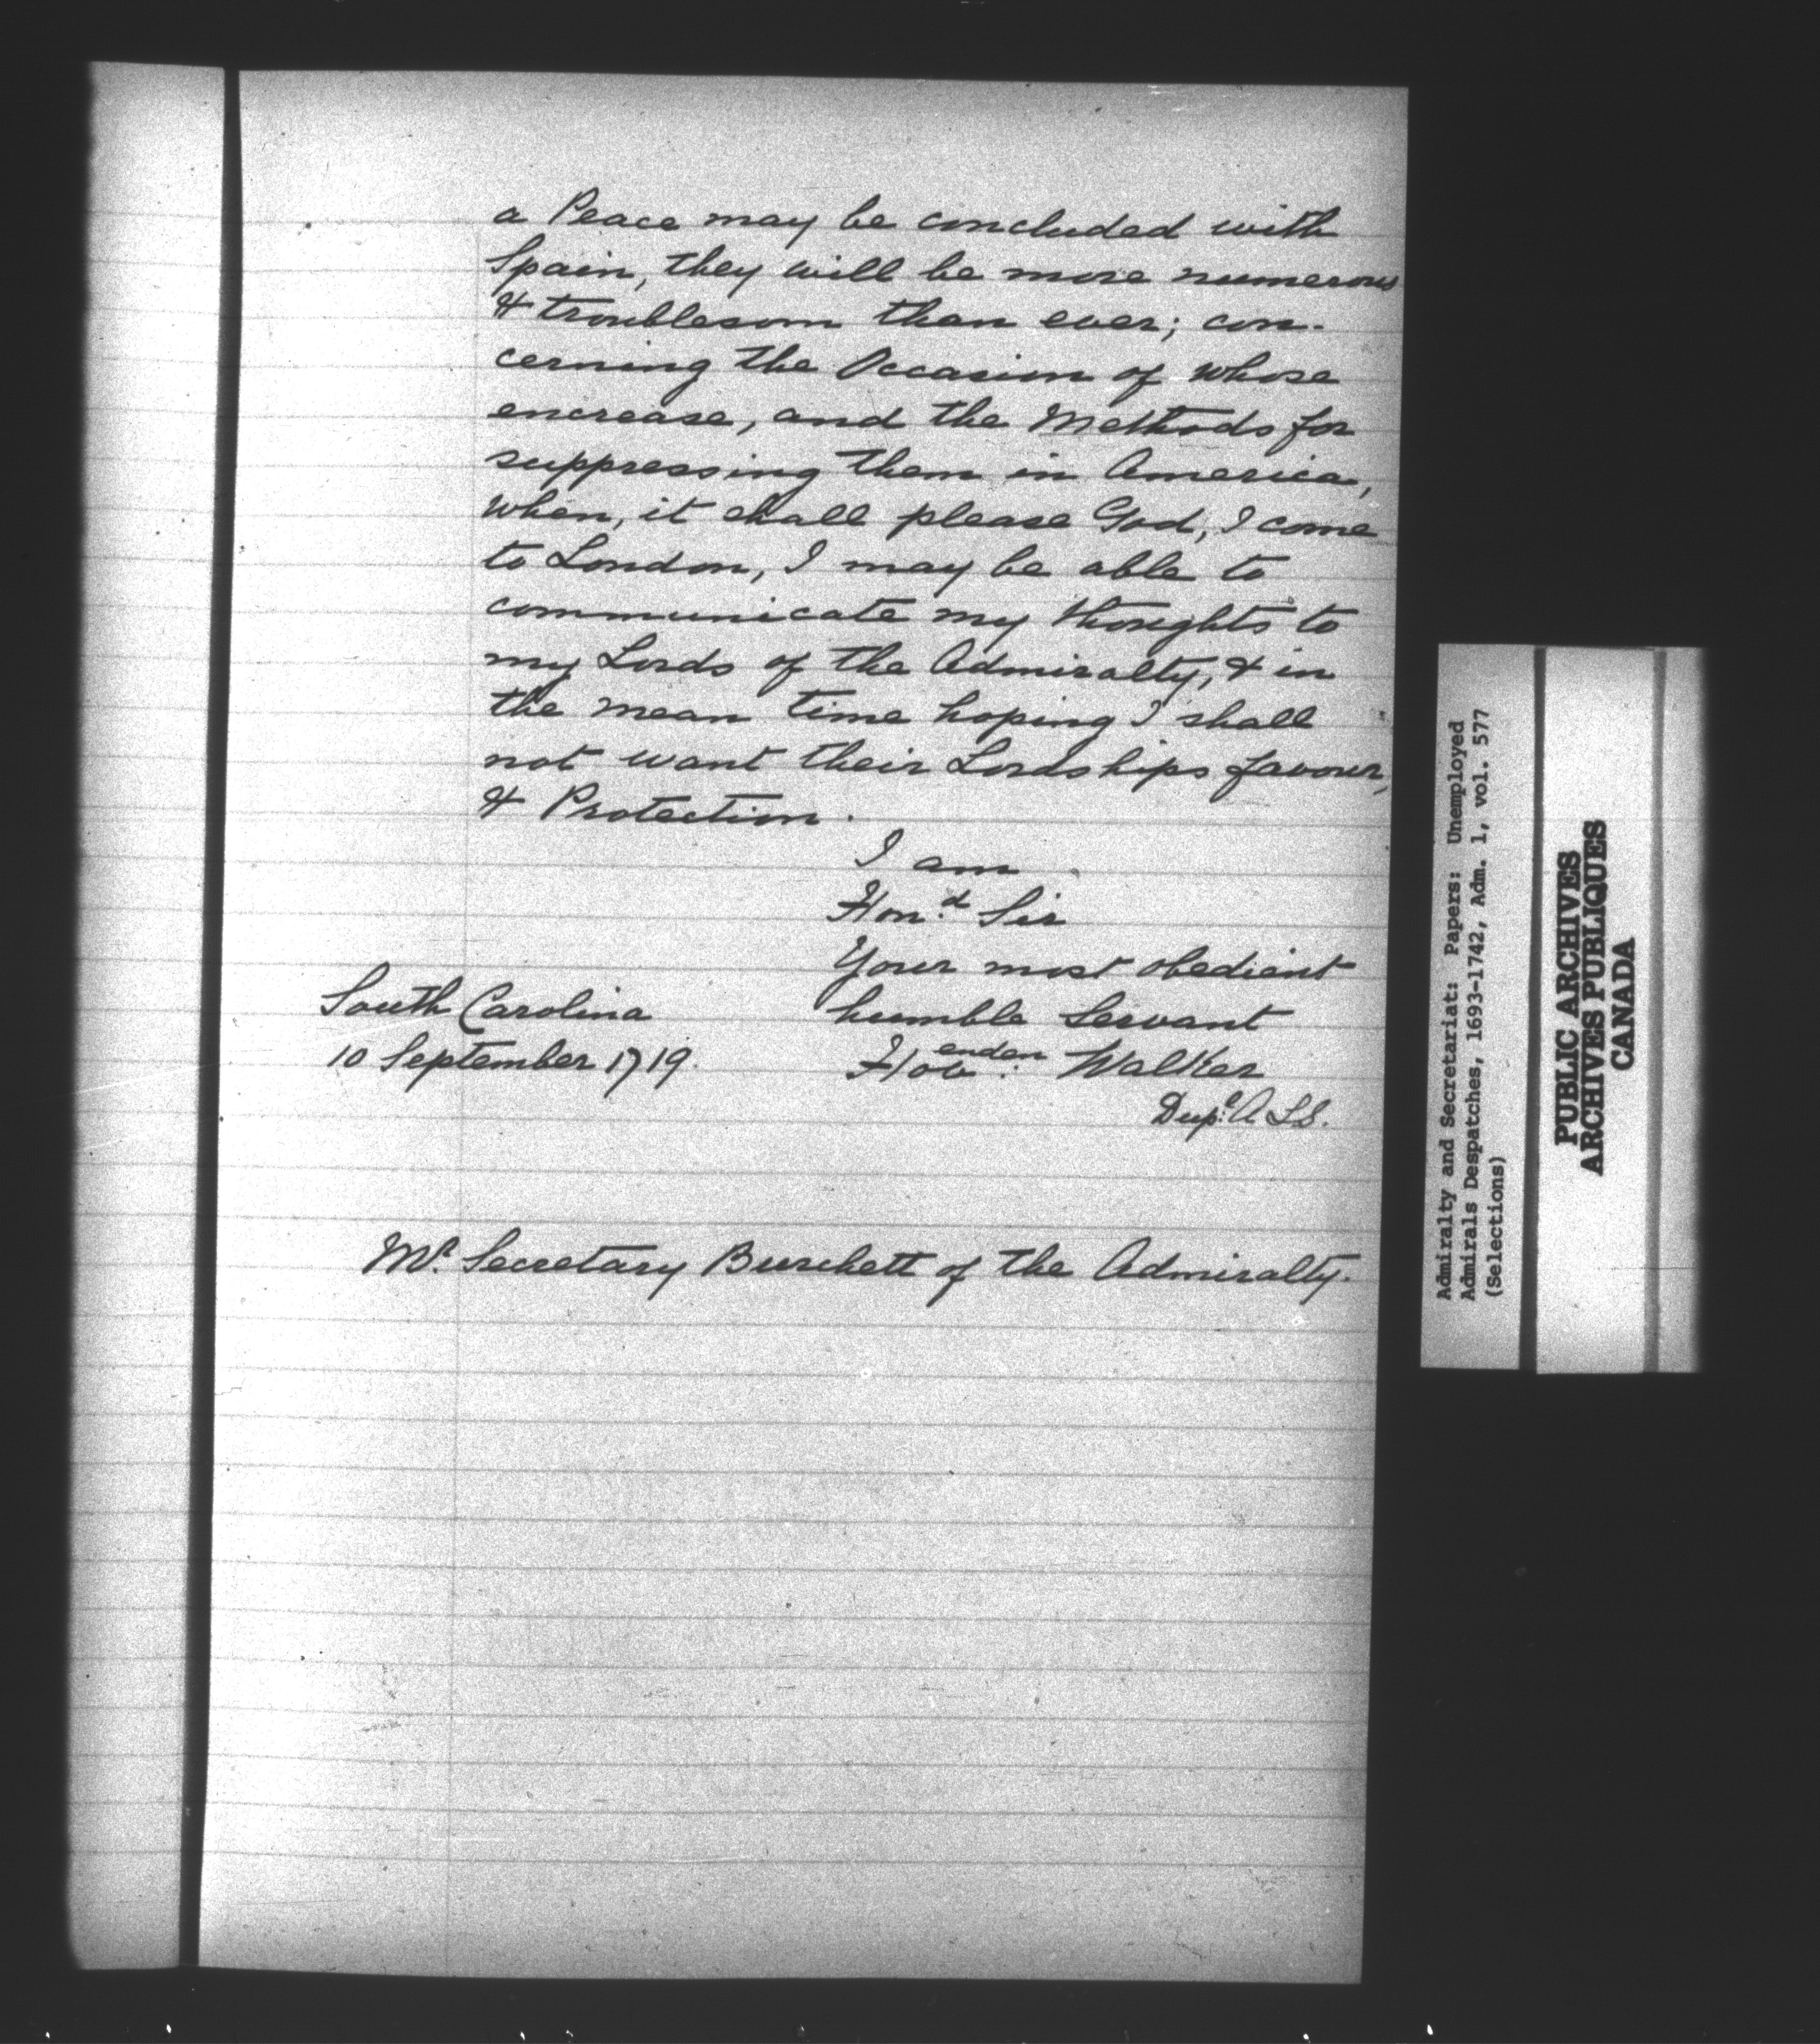 a Peace may be concluded with
Spain, they will be more numerous
& troublesom than ever; con-
cerning the Occasion of whose
encrease, and the Methods for
suppressing them in America,
when, it shall please God, I come
to London, I may be able to
communicate my thoughts to
my Lords of the Admiralty, & in
the mean time hoping I shall
not want their Lordships favour,
& Protection.
I am
Hon.d Sir
Your most obedient
humble Servant
Hov:enden Walker
South Carolina
10 September 1719.
Dup:e A L S.
Mr. Secretary Burchett of the Admiralty.
Admiralty and Secretariat: Papers: Unemployed
Admirals Despatches, 1693-1742, Adm. 1, vol. 577
(Selections)
PUBLIC ARCHIVES
ARCHIVES PUBLIQUES
CANADA